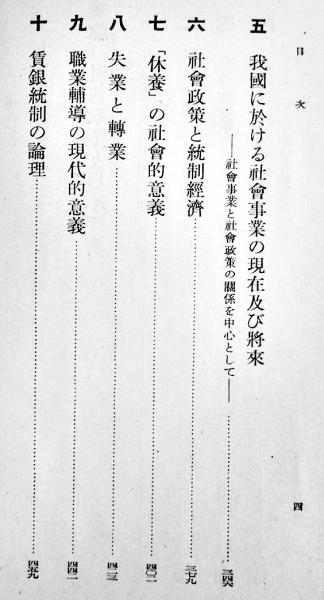 目次
五 我國に於ける社會事業の現在及び將來
――社會事業と社會政策の關係を中心として――……三四六
六 社會政策と統制經濟……三七九
七 「休養」の社會的意義……四〇一
八 失業と轉業……四一三
九 職業輔導の現代的意義……四四一
十 賃銀統制の論理……四五九
四